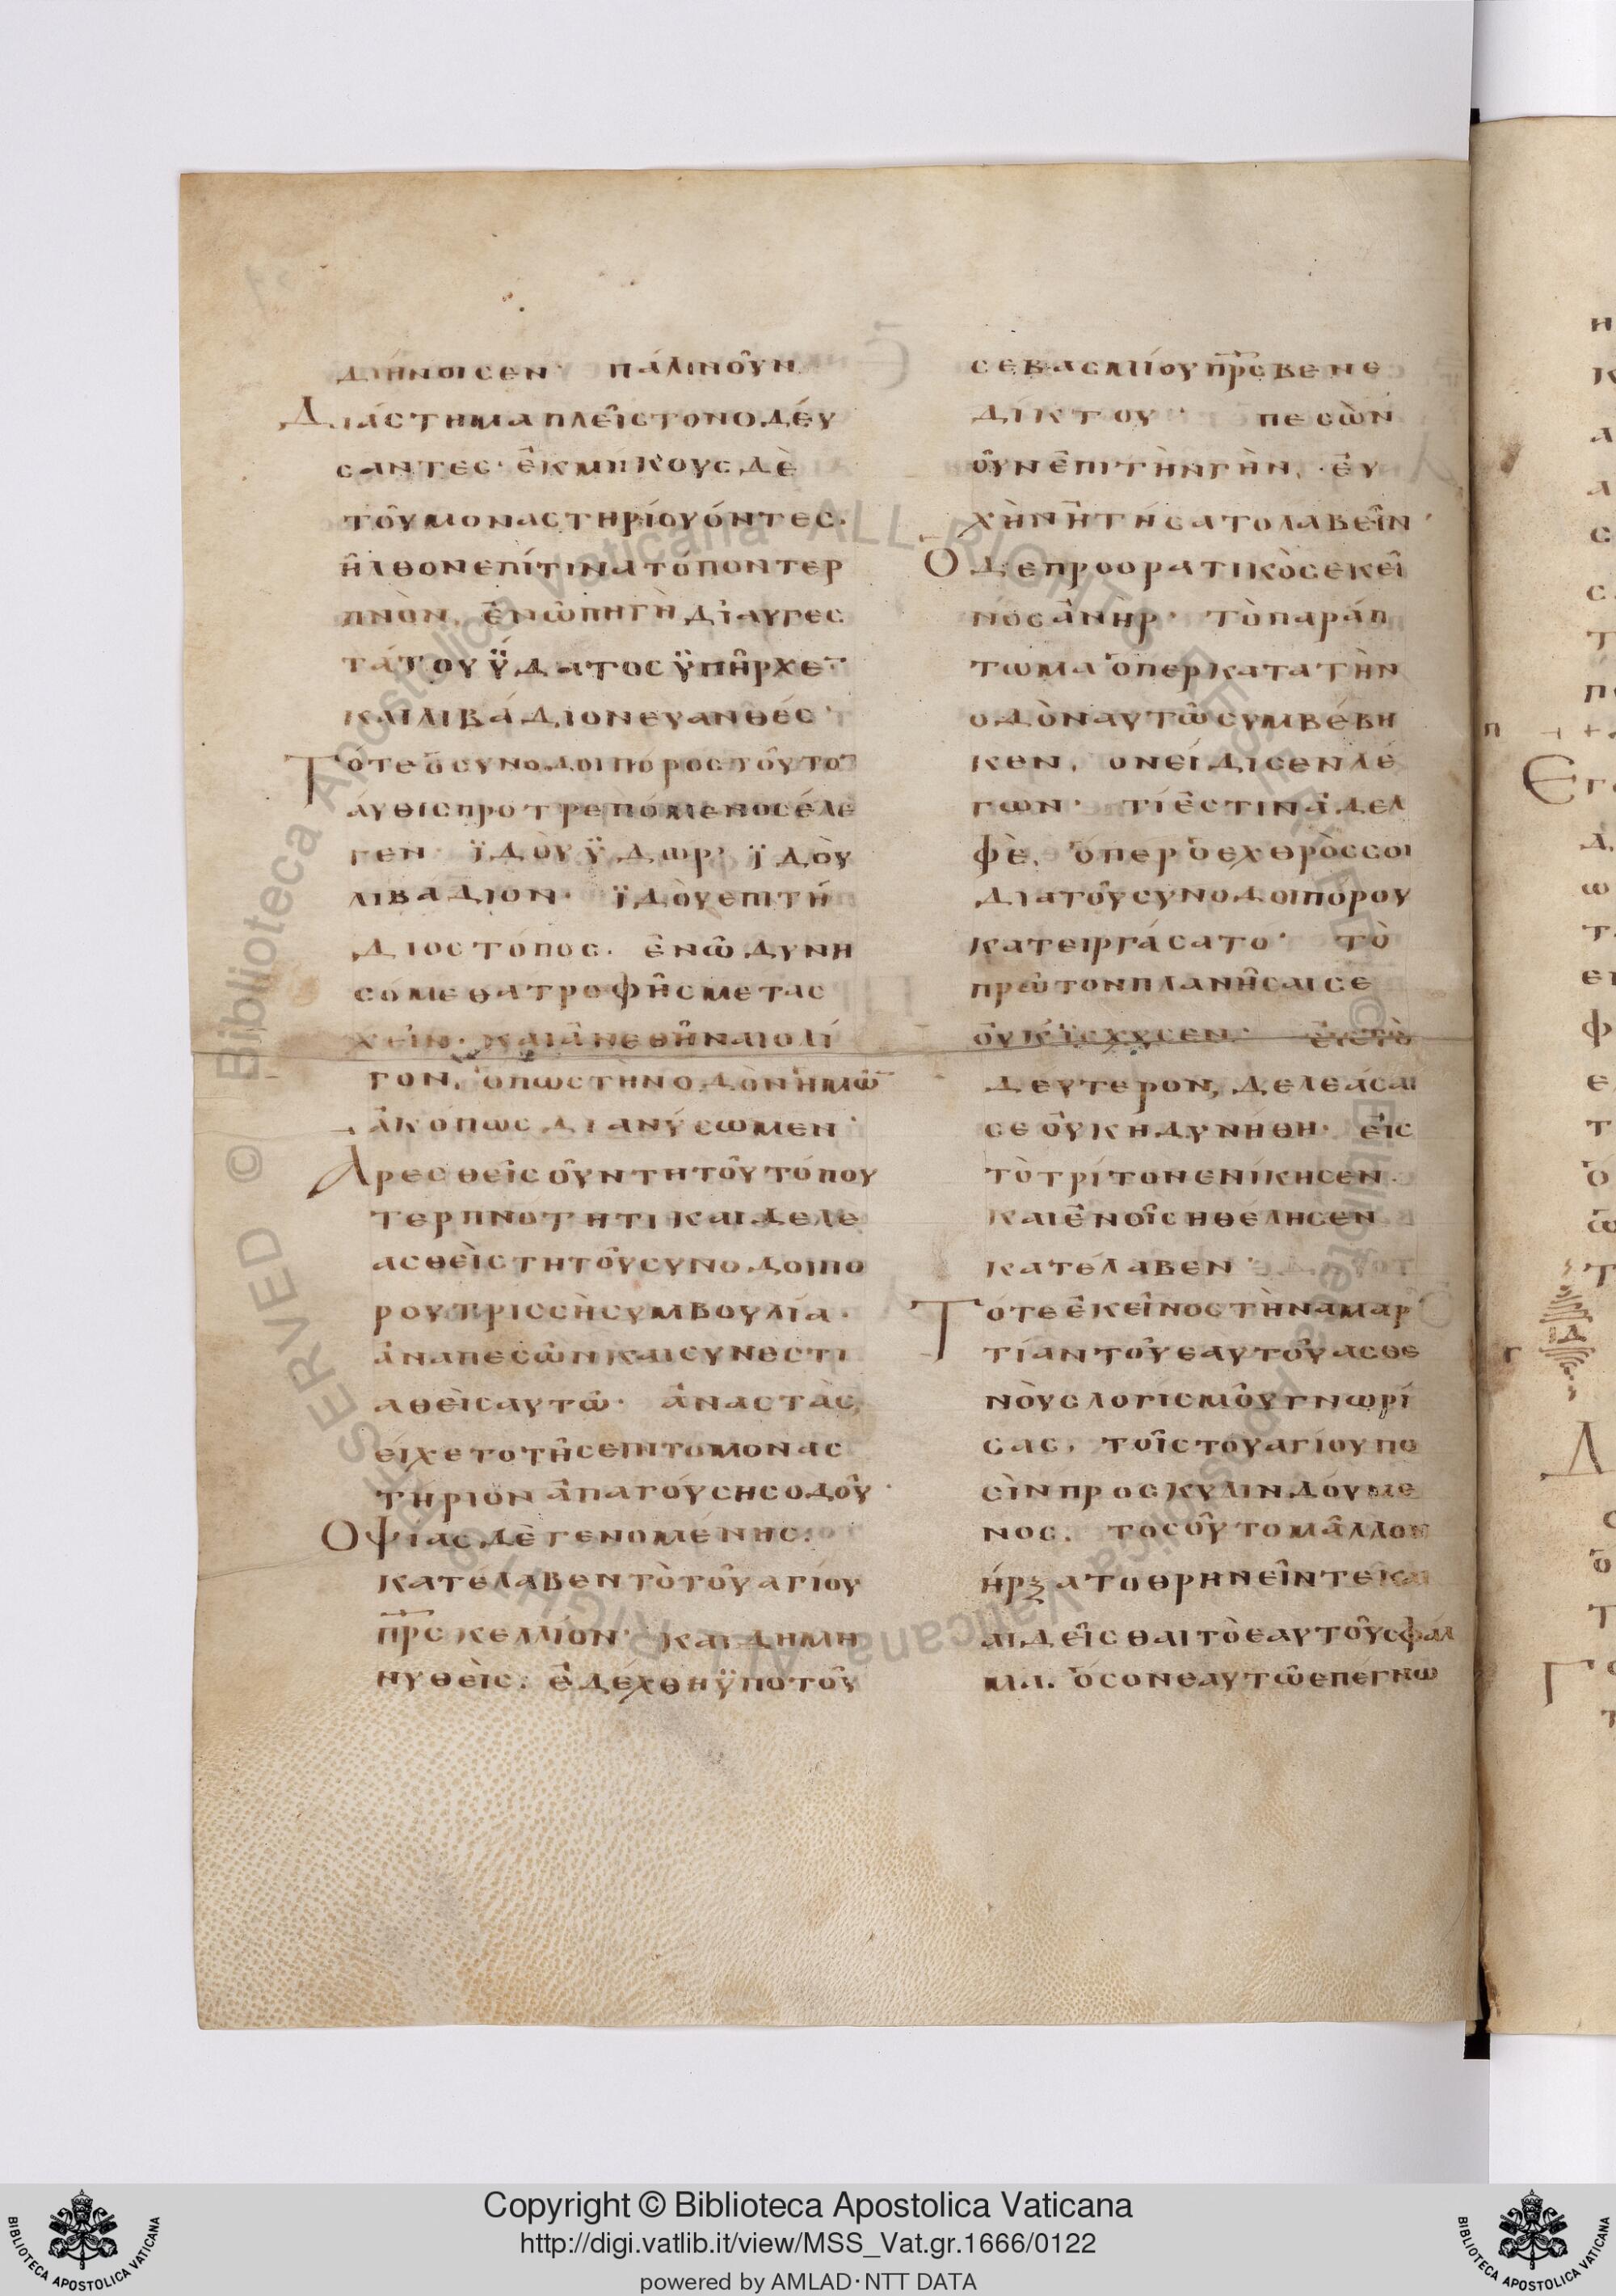 διήνοισεν· πάλιν οὖν
Διάστημα πλεῖστον ὁδέυ
σαντες· ἐκ μήκους δὲ
τοῦ μοναστηρίου όντες.
ἦλθον επί τινα τόπον τερ
πνὸν, ἐν ὧ πηγὴ διαυγεσ
τάτου ΰδατος ϋπῆρχε
και λιβάδιον ευανθές·
Τότε ὁ συνοδοιπόρος τοῦτο
άυθις προτρεπόμενος έλε
γεν· ϊδὸυ ΰδωρ· ϊδὸυ
λιβάδιον· ϊδὸυ επιτή
διος τόπος. ἐν ὧ δυνη
σόμεθα τροφῆς μετασ
χεῖν· και ἀνεθῆναι ολί
γον, ὁπως την οδὸν ἡμῶ
ἀκόπως διανύσωμεν·
Αρεσθεὶς οὖν τη τοῦ τόπου
τερπνότητι και δελε
ασθεὶς τη τοῦ συνοδοιπό
ρου τρισσὴ συμβουλία·
ἀναπεσὼν και συνεστι
αθεὶς αυτῶ· ἀναστὰς,
είχετο τῆς επι το μονασ
τήριον ἀπαγούσης οδοῦ·
Οψίας δὲ γενομένης·
κατέλαβεν τὸ τοῦ αγίου
πρς κελλίον· και δημη
νυθεὶς· ἐδέχθη ϋπο τοῦ
σεβασμίου πρς βενε
δίκτου· πεσὼν
οὖν ἐπι τὴν γὴν, ἐυ
χὴν ἠτήσατο λαβεῖν·
Ο δε προορατικὸς εκεῖ
νος ἀνὴρ· τὸ παράπ
τωμα ὁπερ κατα τὴν
οδὸν αυτῶ συμβέβη
κεν, ονείδισεν λέ
γων· τί ἐστιν ἀδελ
φὲ, ὁπερ ὁ εχθρὸς σοι
δια τοῦ συνοδοιπόρου
κατειργάσατο· τὸ
πρῶτον πλανῆσαι σε
οὐκ ΐσχυσεν· εἰς τὸ
δευτερον, δελεάσαι
σε οὐκ ηδυνήθη· εἰς
τὸ τρίτον ενίκησεν·
και ἐν οἷς ηθέλησεν
κατέλαβεν
Τότε ἐκεῖνος τὴν αμαρ
τίαν τοῦ εαυτοῦ ασθε
νὸυς λογισμοῦ γνωρί
σας, τοῖς του αγίου πο
σὶν προσκυλινδόυμε
νος. τοσοῦτο μᾶλλον
ήρξατο θρηνεῖν τε και
αιδεῖσθαι τὸ εαυτοῦ σφάλ
μα. ὁσον εαυτῶ επέγνω
Copyright © Biblioteca Apostolica Vaticana
http://digi.vatlib.it/view/MSS_Vat.gr.1666/0122
powered by AMLAD·NTT DATA